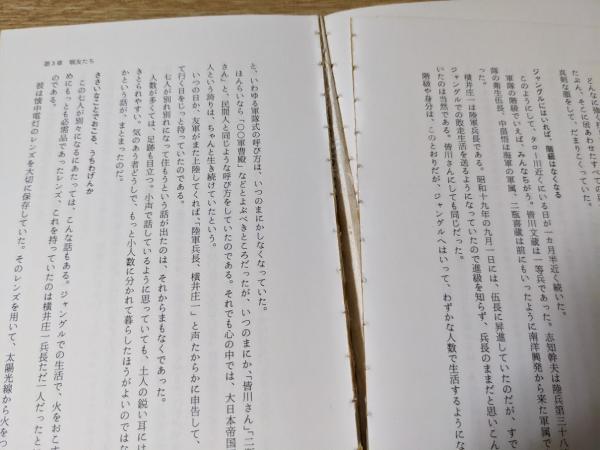 どんなに強く
たぶん、そこに砥あわせたすべての日
真剣な顔をして、だまりこくっていた。
ジャングルにはいれば、階級はなくなる
このようにして、タロー川近くにいる日が一カ月半近く続いた。
軍隊の階級でいえば、みんなちがう。皆川文蔵は一等兵であった。志知幹夫は陸兵第三十八
隊の衛生伍長、中畠悟は海軍の軍属、二瓶喜蔵は前にもいったように南洋興発から来た軍属で
った。
横井庄一は陸軍兵長である。昭和十九年の九月一日には、伍長に昇進していたのだが、すで
ジャングルでの敗走生活を送るようになっていたので進級を知らず、兵長のままだと思いこん
いたのは当然である。皆川さんにしても同じだった。
階級や身分は、このとおりだが、ジャングルへはいって、わずかな人数で生活するようにな
第3章 戦友たち
と、いわゆる軍隊式の呼び方は、いつのまにかしなくなっていた。
ほんらいなら、「〇〇軍曹殿」などとよぶべきところだったが、いつのまにか、「皆川さん」「二瓶
さん」と、民間人と同じような呼び方をしていたのである。それでも心の中では、大日本帝国
人という誇りは、ちゃんと生き続けていたという。
いつの日か、友軍がまた上陸してくれば、「陸軍兵長、横井庄一」と声たからかに申告して、
て行く日をじっと待っていたのである。
七人が別れ別れになって住もうという話が出たのは、それからまもなくであった。
人数が多くては、足跡も目立つ。小声で話しているように思っていても、土人の鋭い耳には
きとられやすい。気のあう者どうしで、もっと小人数に分かれて暮らしたほうがよいのではな
かという話が、まとまったのだ。
ささいなことでおこる、うちわげんか
この七人が別々になるにあたっては、こんな話もある。ジャングルでの生活で、火をおこす
めにもっとも必需品であったレンズ、これを持っていたのは横井庄一兵長ただ一人だったと
のである。
彼は懐中電灯のレンズを大切に保存していた。そのレンズを用いて、太陽光線から火をつ